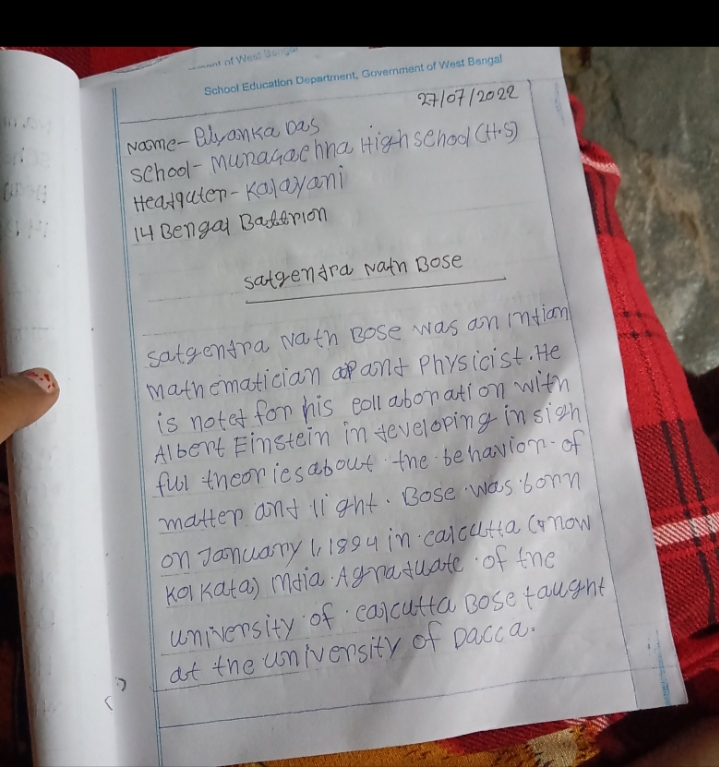 School Education Department, Government of West Bengal
27/07/2022
Name- Piyanka Das
School- Muragachha High school (H.S)
Headquter- Kalayani
14 Bengal Battrion
Satyendra Nath Bose
Satyendra Nath Bose was an Indian
Mathematician and Physicist. He
is noted for his collaboration with
Albert Einstein in developing insigh
ful theories about the behavior of
matter and light. Bose was born
on January 1, 1894 in calcutta (now
Kolkata) India. A graduate of the
university of calcutta Bose taught
at the university of Dacca.